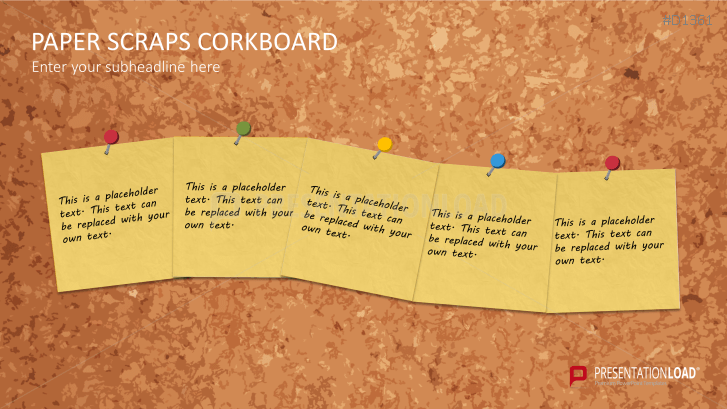 PAPER SCRAPS CORKBOARD
Enter your subheadline here
This is a placeholder
text. This text can
be replaced with your
own text.
This is a placeholder
text. This text can
be replaced with your
own text.
This is a placeholder
text. This text can
be replaced with your
own text.
This is a placeholder
text. This text can
be replaced with your
own text.
This is a placeholder
text. This text can
be replaced with your
own text.
PRESENTATIONLOAD®